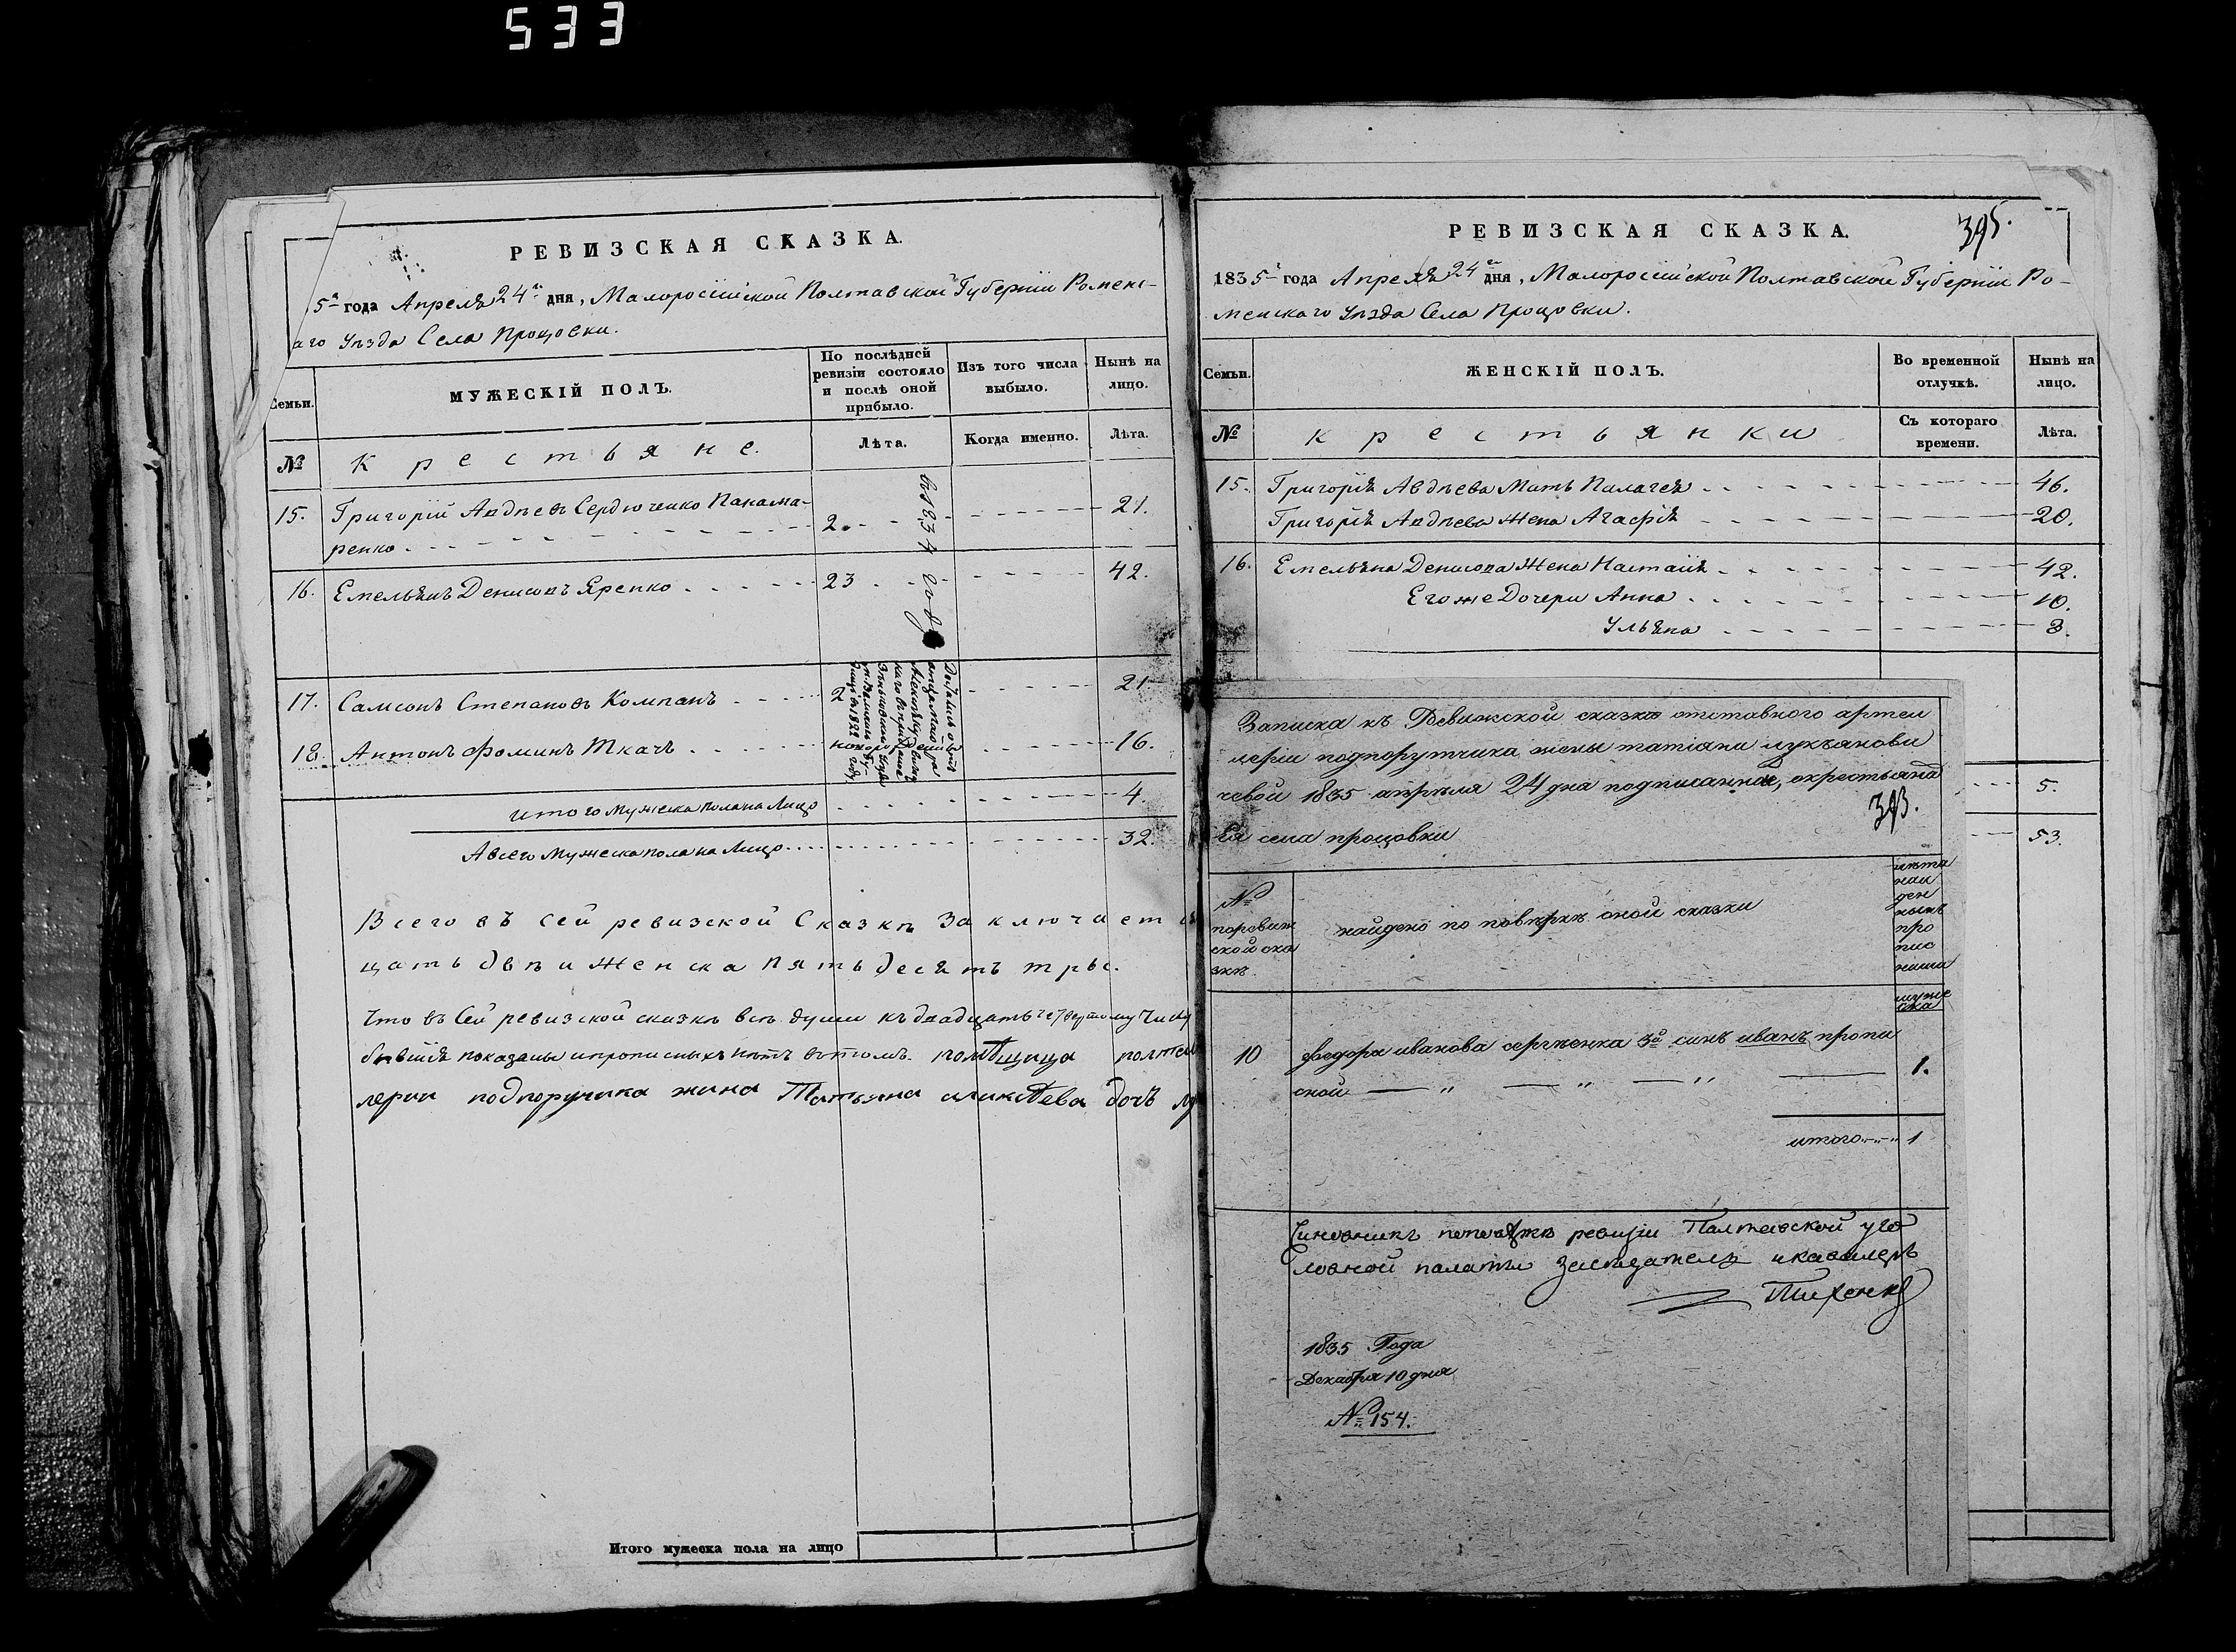 533
РЕВИЗСКАЯ СКАЗКА.
5го года Апреля 24го дня, Малоросiйской Полтавской Губернiи Роменс-
аго Уѣзда Села Процовки.
Семьи.
МУЖЕСКІЙ ПОЛЪ.
По послѣдней ревизіи состояло и послѣ оной прибыло.
Изъ того числа выбыло.
Нынѣ на лицо.
№
Крестьяне.
Лѣта.
Когда именно.
Лѣта.
15. Григорій Авдѣевъ Сердюченко Панама- 2. 21.
ренко
въ 1834 году
16. Емельянъ Денисовъ Яренко 23 42.
17. Самсонъ Степановъ Компанъ 2 21
18. Антонъ Фоминъ Ткачъ 16.
итого мужеска пола на Лицо 4.
А всего мужеска пола на Лицо 32.
Всего въ сей ревизской Сказкѣ Заключает
цать двѣ и Женска пять десятъ три.
Что въ Сей ревизской сказкѣ всѣ души къ двадцать четвертому числу
бывшія показаны и прописныхъ нѣтъ въ томъ. помѣщица
лерии подпоручика жина Татьяна аликсѣева дочъ
Итого мужеска пола на лицо
РЕВИЗСКАЯ СКАЗКА.
395.
1835го года Апреля 24го дня, Малоросiйской Полтавской Губернiи Ро-
менскаго Уѣзда Села Процовки.
Семьи.
ЖЕНСКІЙ ПОЛЪ.
Во временной отлучкѣ.
Нынѣ на лицо.
№
Крестьянки
Съ котораго времени.
Лѣта.
15. Григорія Авдѣева Мать Палагея 46.
Григорія Авдѣева Жена Агафія 20.
16. Емельяна Денисова Жена Настасія 42.
Его же Дочери Анна 10.
Ульяна 3.
5.
53.
Записка къ Ревижской сказкѣ отставного артел
лерiи подпорутчика жены татiяни лукъянови
чевой 1835 апрѣля 24 дна подписанной, окрестьянa
393.
Ея села процовки
№
поревиж
ской ска
зкѣ
найдено по повѣркѣ оной сказки
лѣта
най
ден
ныхъ
про
пис
ныма
муже
ска
10 федора иванова сергѣенка 3й синъ иванъ пропи
сной 1.
итого 1
Чиновникъ поповѣркѣ ревизiи Палтавской уго
ловной палаты Засѣдатель и кавалеръ
Тихонк
1835 Года
Декабря 10 дня
№ 154.